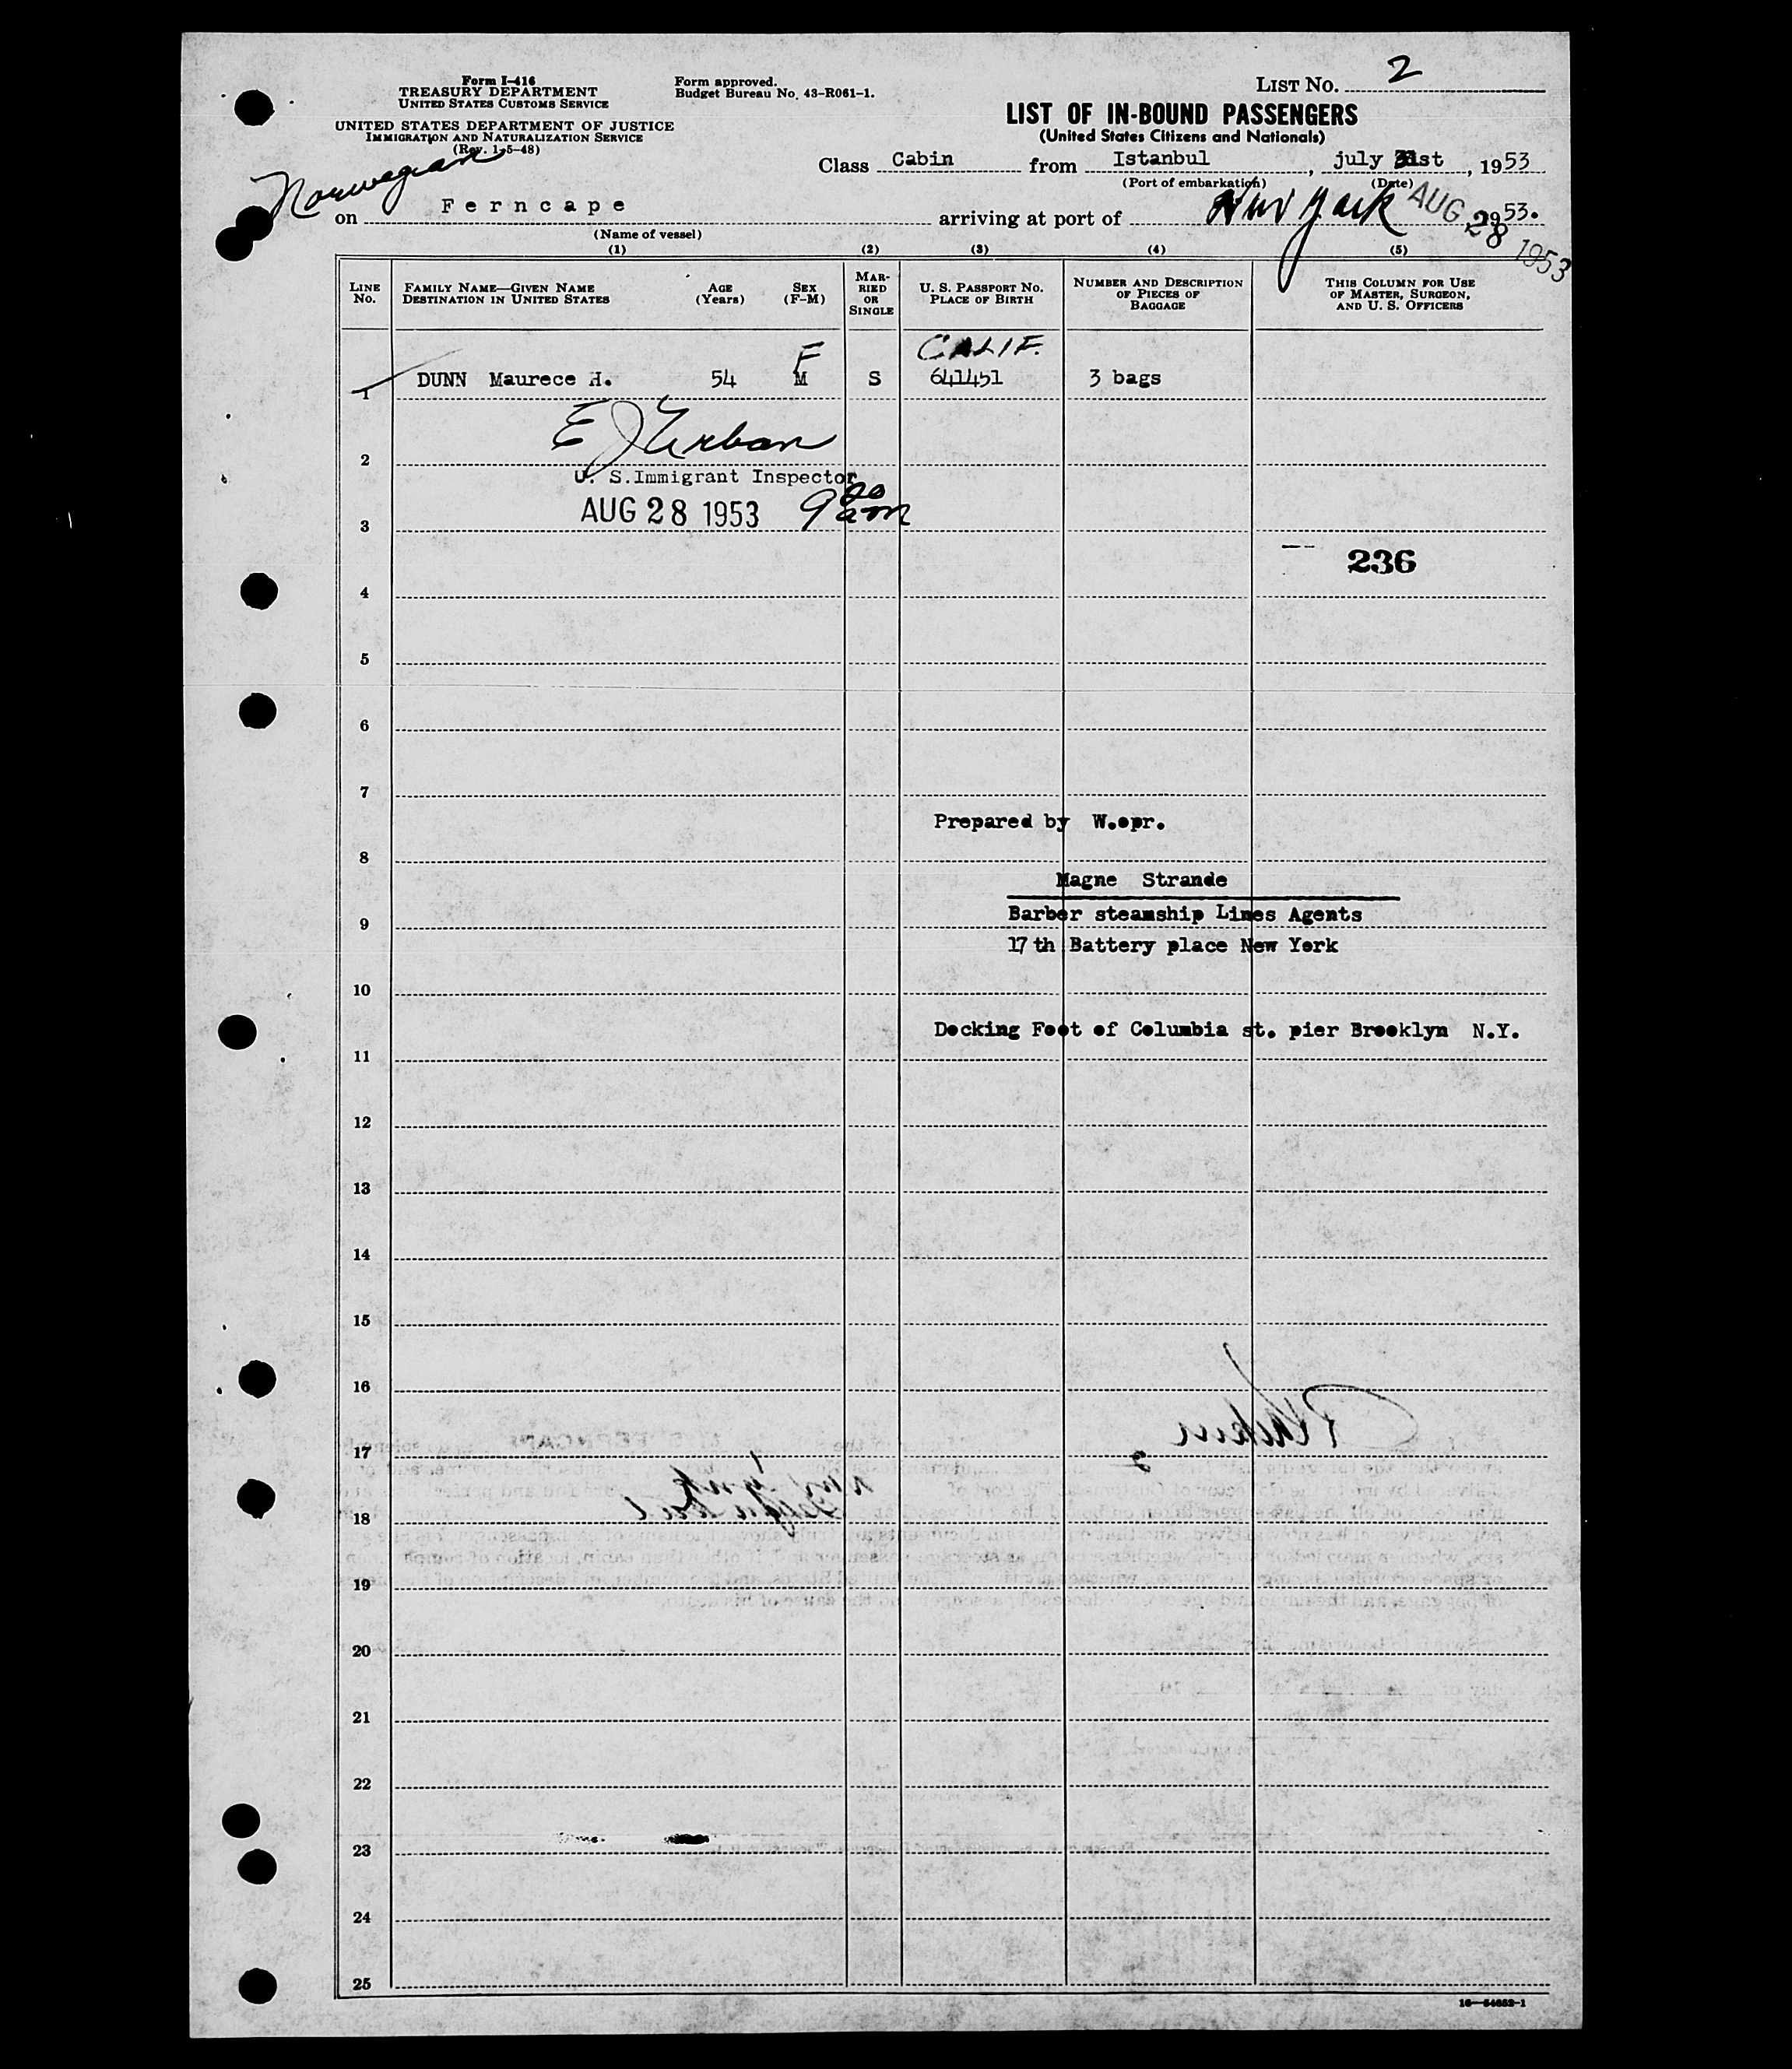 Form I-416
TREASURY DEPARTMENT
UNITED STATES CUSTOMS SERVICE
UNITED STATES DEPARTMENT OF JUSTICE
IMMIGRATION AND NATURALIZATION SERVICE
(Rev. 1-5-48)
Form approved.
Budget Bureau No. 43-R061-1.
LIST NO. 2
LIST OF IN-BOUND PASSENGERS
(United States Citizens and Nationals)
Class Cabin from Istanbul, july 31st, 1953
(Port of embarkation) (Date)
Norwegian
on Ferncape arriving at port of New York 1953.
AUG 28 1953
(Name of vessel)
(1) (2) (3) (4) (5)
LINE No. FAMILY NAME—GIVEN NAME DESTINATION IN UNITED STATES AGE (Years) SEX (F-M) MARRIED OR SINGLE U. S. PASSPORT NO. PLACE OF BIRTH NUMBER AND DESCRIPTION OF PIECES OF BAGGAGE THIS COLUMN FOR USE OF MASTER, SURGEON, AND U. S. OFFICERS
F CALIF.
1 DUNN Maurece H. 54 M S 641451 3 bags
E J Urban
2
U. S.Immigrant Inspector
AUG 28 1953 9 am
3
236
4
5
6
7
Prepared by W.opr.
8
Magne Strande
Barber steamship Lines Agents
9
17th Battery place New York
10
Docking Foot of Columbia st. pier Brooklyn N.Y.
11
12
13
14
15
16
17
18
19
20
21
22
23
24
25
16—54652-1